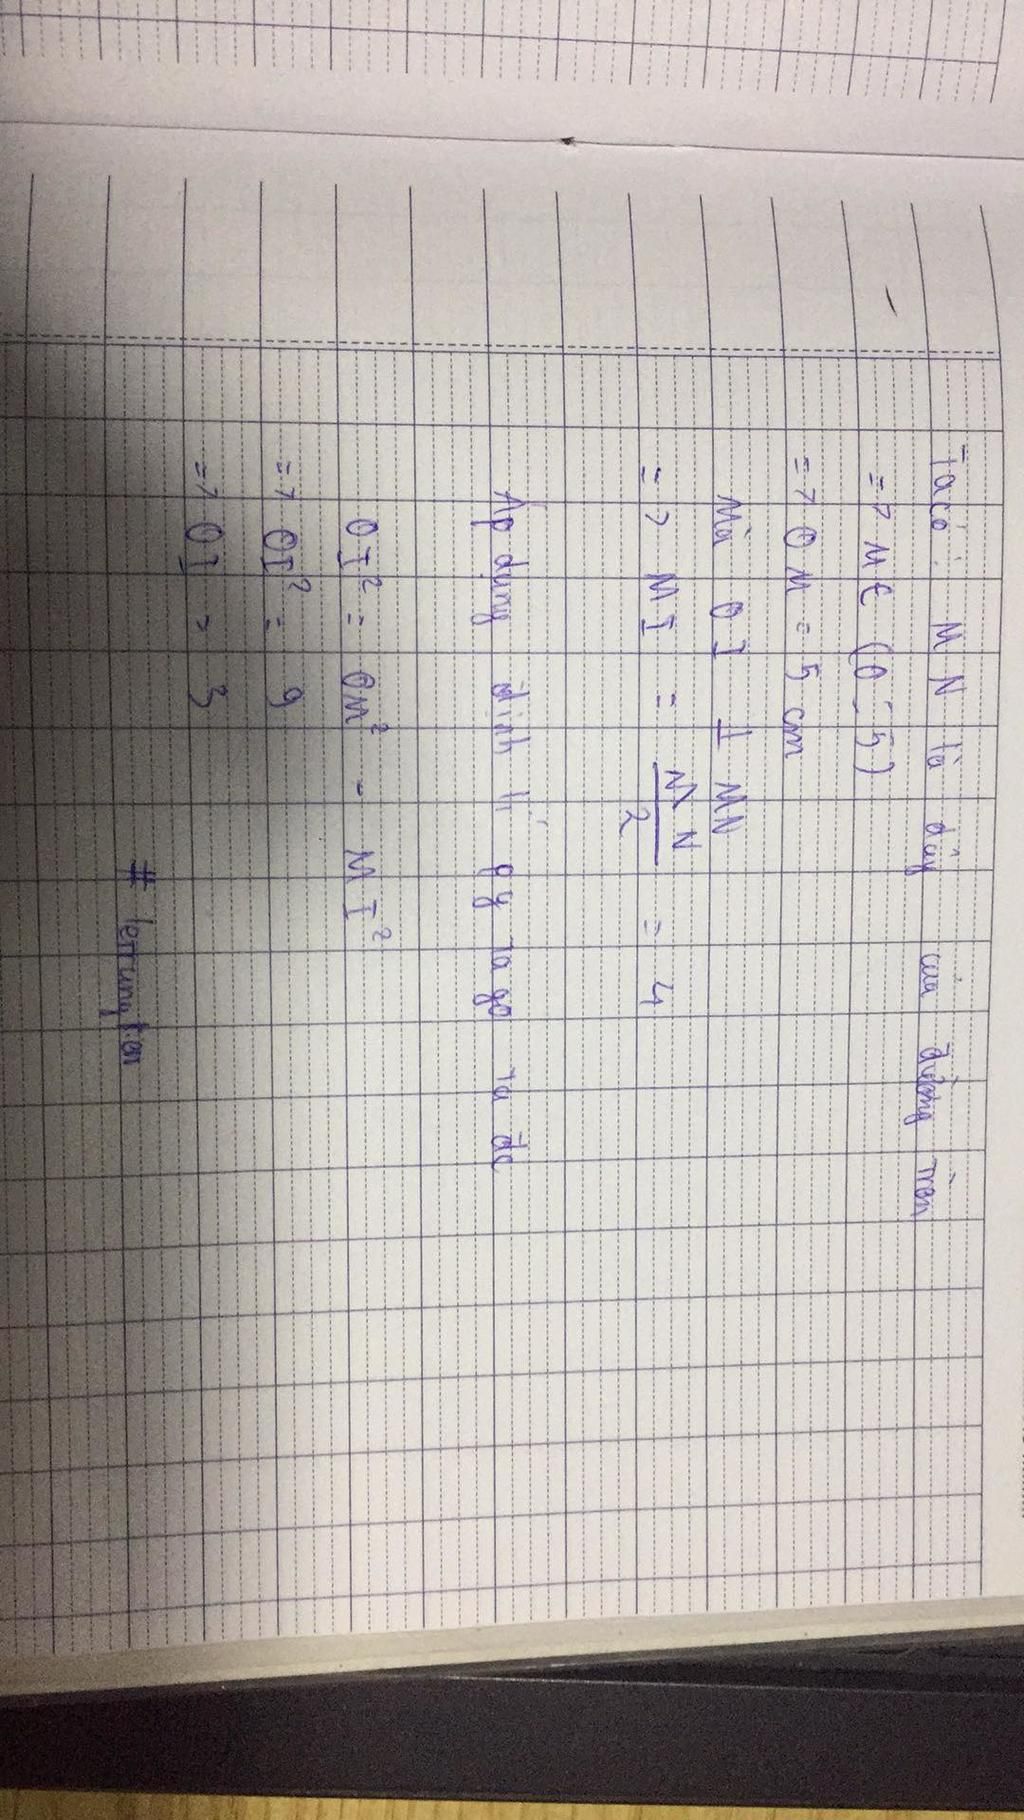 Ta có: MN là dây của đường tròn
=> M ∈ (O; 5)
=> OM = 5 cm
Mà OI ⊥ MN
=> MI = MN/2 = 4
Áp dụng định lí py ta go ta dc
OI² = OM² - MI²
=> OI² = 9
=> OI > 3
#